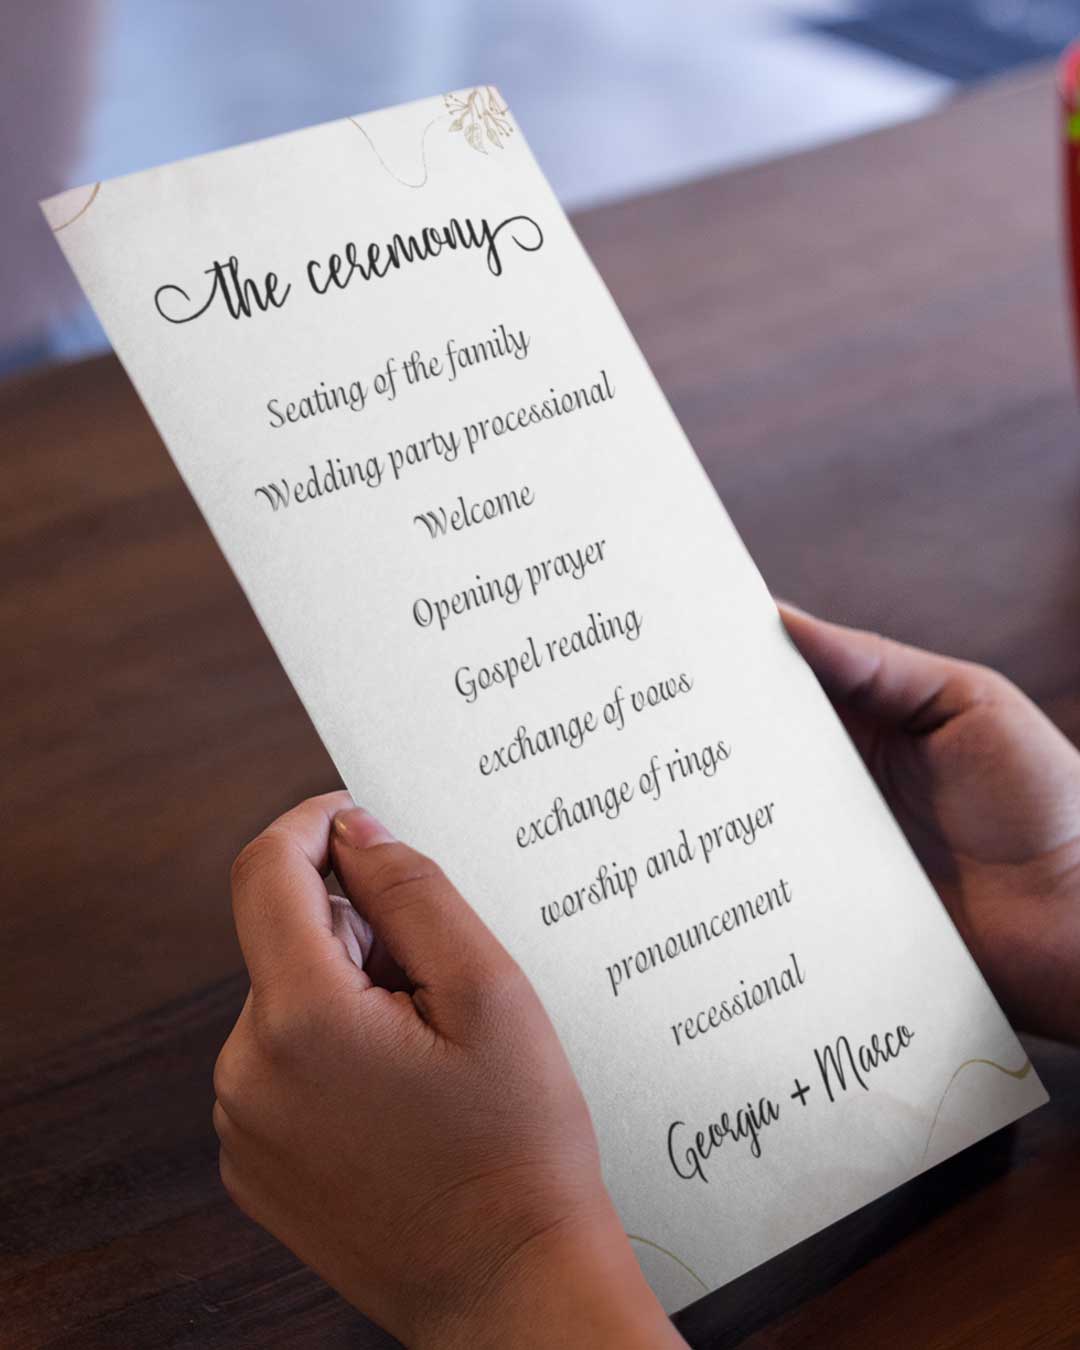 the ceremony
Seating of the family
Wedding party processional
Welcome
Opening prayer
Gospel reading
exchange of vows
exchange of rings
worship and prayer
pronouncement
recessional
Georgia + Marco